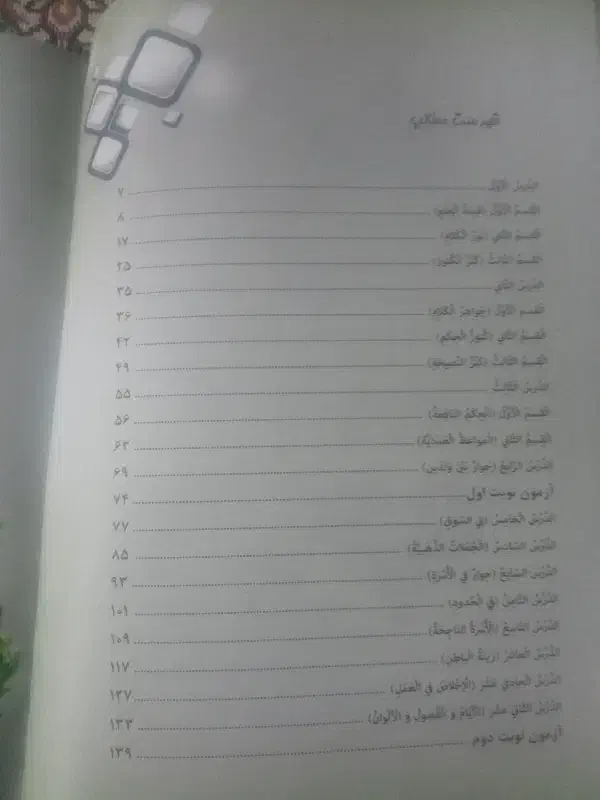 فهرست مطالب
الدَّرْسُ الْأَوَّلُ ۷
القِسمُ الْأَوَّلُ (قیمَةُ الْعِلْمِ) ۸
القِسمُ الثّاني (نورُ الْکَلامِ) ۱۷
القِسمُ الثّالِثُ (کَنْزُ الْکُنوزِ) ۲۵
الدَّرْسُ الثّاني ۳۵
القِسمُ الْأَوَّلُ (جَواهِرُ الْکَلامِ) ۳۶
القِسمُ الثّاني (کُنوزُ الْحِکَمِ) ۴۲
القِسمُ الثّالِثُ (کَنْزُ النَّصیحَةِ) ۴۹
الدَّرْسُ الثّالِثُ ۵۵
القِسمُ الْأَوَّلُ (اَلْحِکَمُ النّافِعَةُ) ۵۶
القِسمُ الثّاني (اَلْمَواعِظُ الْعَدَدیَّةُ) ۶۳
الدَّرْسُ الرّابِعُ (حِوارٌ بَیْنَ وَلَدَینِ) ۶۹
آزمون نوبت اول ۷۴
الدَّرْسُ الْخامِسُ (فِي السّوقِ) ۷۷
الدَّرْسُ السّادِسُ (اَلْجُمَلاتُ الذَّهَبیَّةُ) ۸۵
الدَّرْسُ السّابِعُ (حِوارٌ فِي الْأُسْرَةِ) ۹۳
الدَّرْسُ الثّامِنُ (فِي الْحُدودِ) ۱۰۱
الدَّرْسُ التّاسِعُ (اَلْأُسْرَةُ النّاجِحَةُ) ۱۰۹
الدَّرْسُ الْعاشِرُ (زینَةُ الْباطِنِ) ۱۱۷
الدَّرْسُ الْحادي عَشَرَ (اَلْإخْلاصُ فِي الْعَمَلِ) ۱۲۷
الدَّرْسُ الثّاني عَشَرَ (اَلْأَیّامُ وَ الْفُصولُ وَ الْأَلْوانُ) ۱۳۳
آزمون نوبت دوم ۱۳۹